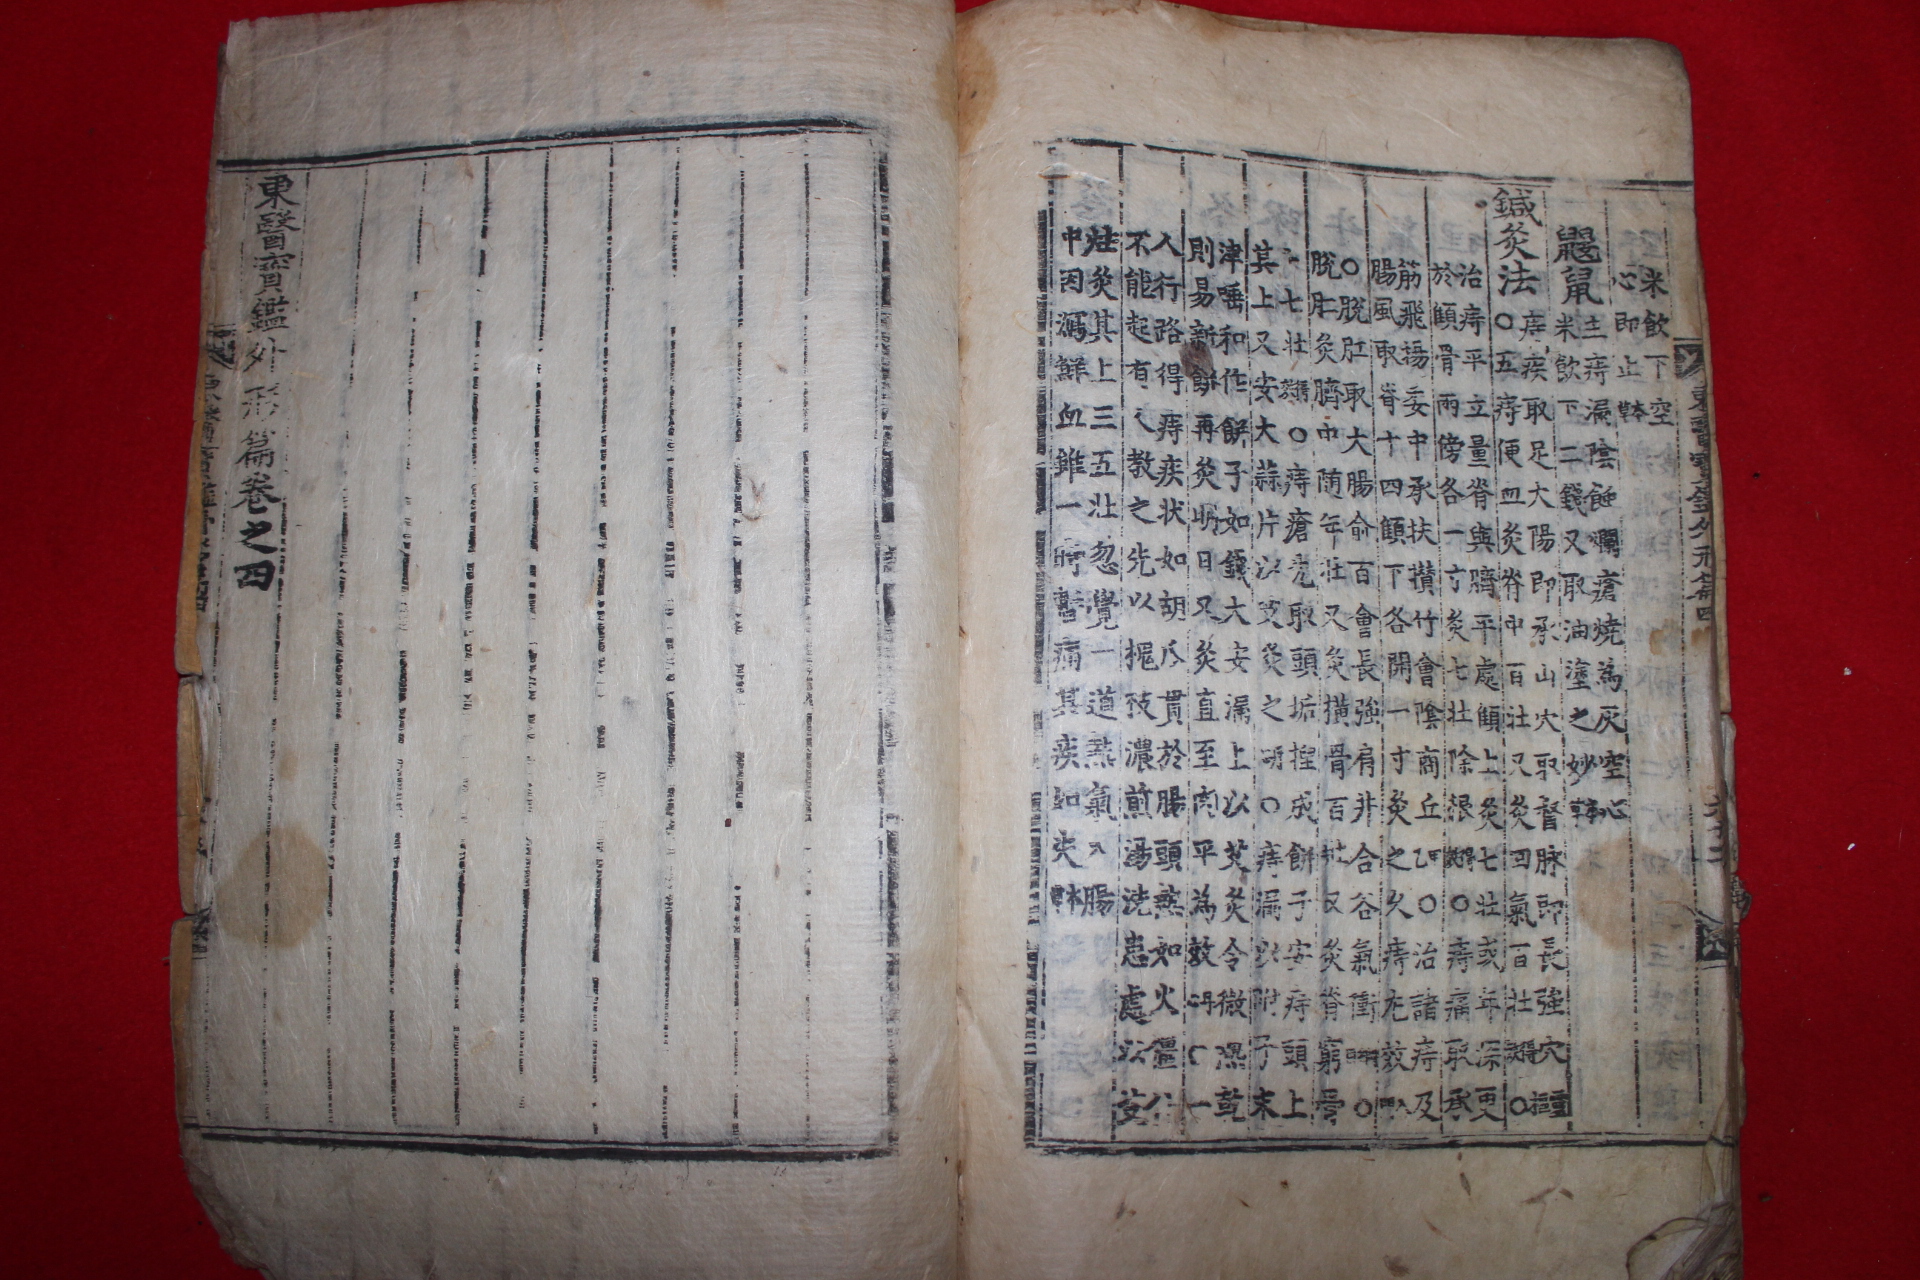 米飮下空
心即止
鼴鼠
土痔漏陰蝕爛瘡燒為灰空心
米飮下二錢又取油塗之妙
鍼灸法
痔疾取足太陽即承山穴取督脉即長強穴
○五痔便血灸脊中百壯又灸回氣百壯○
治痔平立量脊與臍平處顀上灸七壯或年深更
於顀骨兩傍各一寸灸七壯除根○痔痛取承
筋飛揚委中承扶攅竹會陰商丘○治諸痔及
腸風取脊十四顀下各開一寸灸之久痔尤效
○脫肛取大腸俞百會長強肩井合谷氣衝○
脫肛灸臍中随年壯又灸橫骨百壯又灸脊窮骨
七壯○痔瘡先取頭垢捏成餠子安痔頭上
其上又安大蒜片以艾灸之○痔漏以附子末
津唾和作餠子如錢大安漏上以艾灸令微濕乾
則易新餠再灸明日又灸直至肉平為效○一
人行路得痔疾状如胡瓜貫於腸頭熱如火僵仆
不能起有人教之先以槐枝濃煎湯洗患處以艾
炷灸其上三五壯忽覺一道熱氣入腸
中因瀉鮮血雖一時暫痛其疾如失
東醫寶鑑外形篇四
東醫寶鑑外形篇卷之四